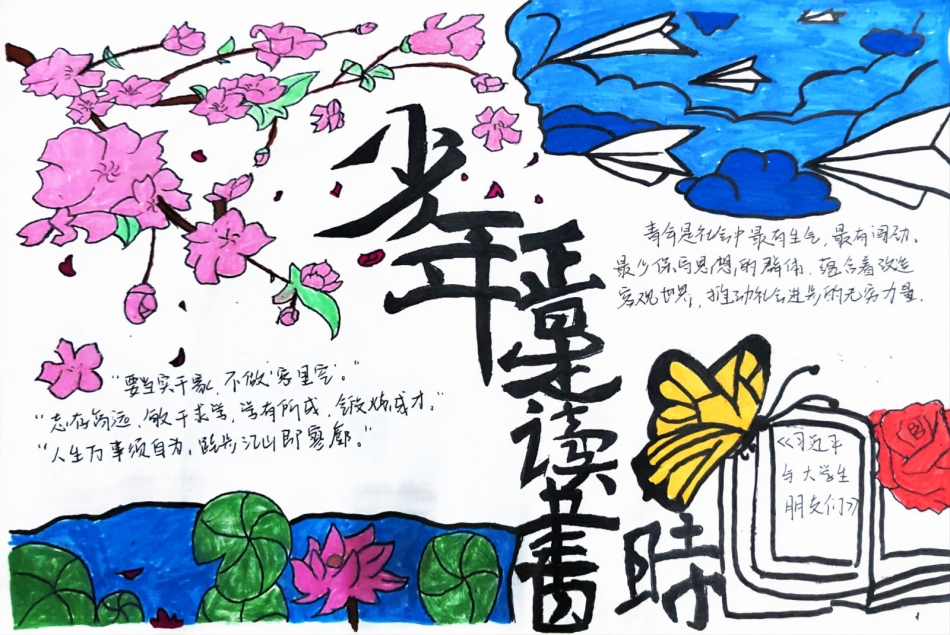 少年正是读書時
青年是社会中最有生气,最有闯劲,
最少保守思想的群体,蕴含着改造
客观世界,推动社会进步的无穷力量.
“要当实干家,不做‘客里空’。”
“志存高远,敏于求学,学有所成,锻炼成才。”
“人生万事须自为,跬步江山即寥廓。”
《习近平
与大学生
朋友们》